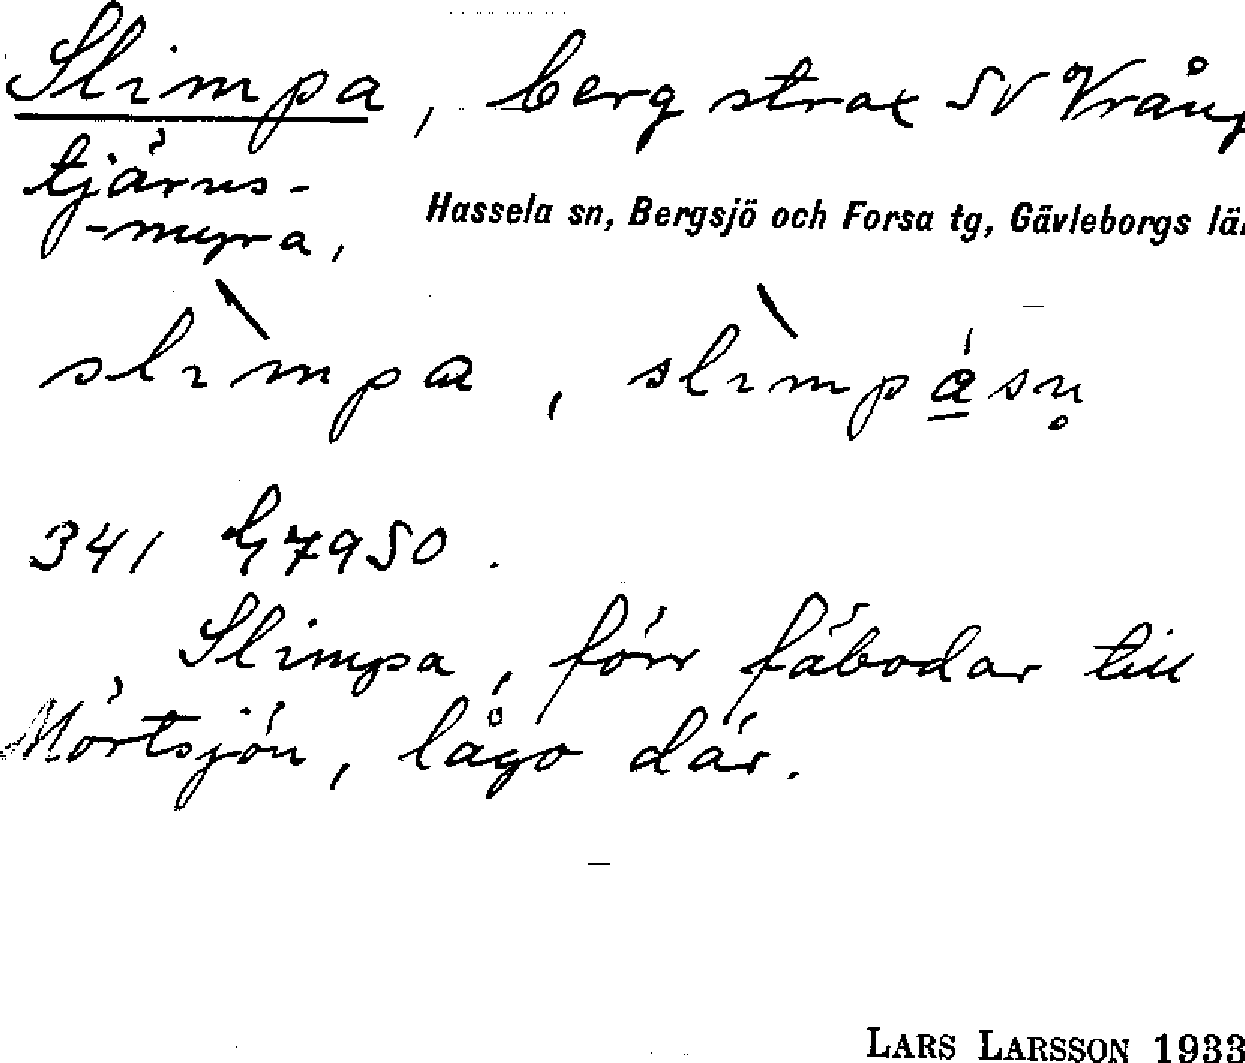 Slimpa, berg strax SV Vrång
tjärns-
-myra,
Hassela sn, Bergsjö och Forsa tg, Gävleborgs lä
slìmpa, slìmpásn̥
341 G7950.
Slimpa, förr fäbodar till
Mörtsjön, lågo där.
LARS LARSSON 1933